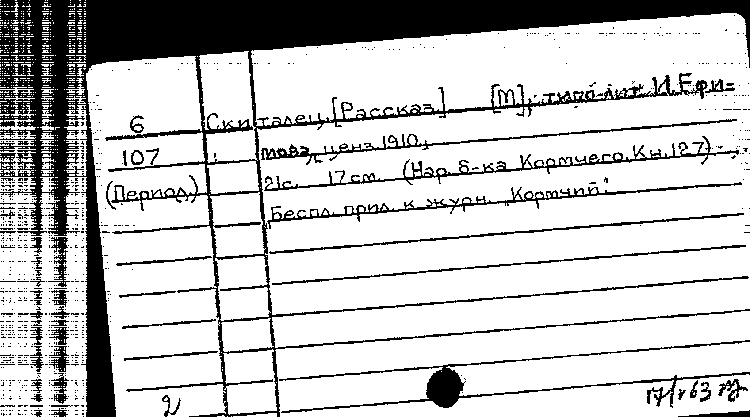 6 Скиталец. [Рассказ] [М], типо-лит И.Ефи-
107 мова, ценз. 1910.
(Период.) 21с. 17см. (Нар. б-ка Кормчего. Кн. 127)
Беспл. прил. к журн. "Кормчий".
2